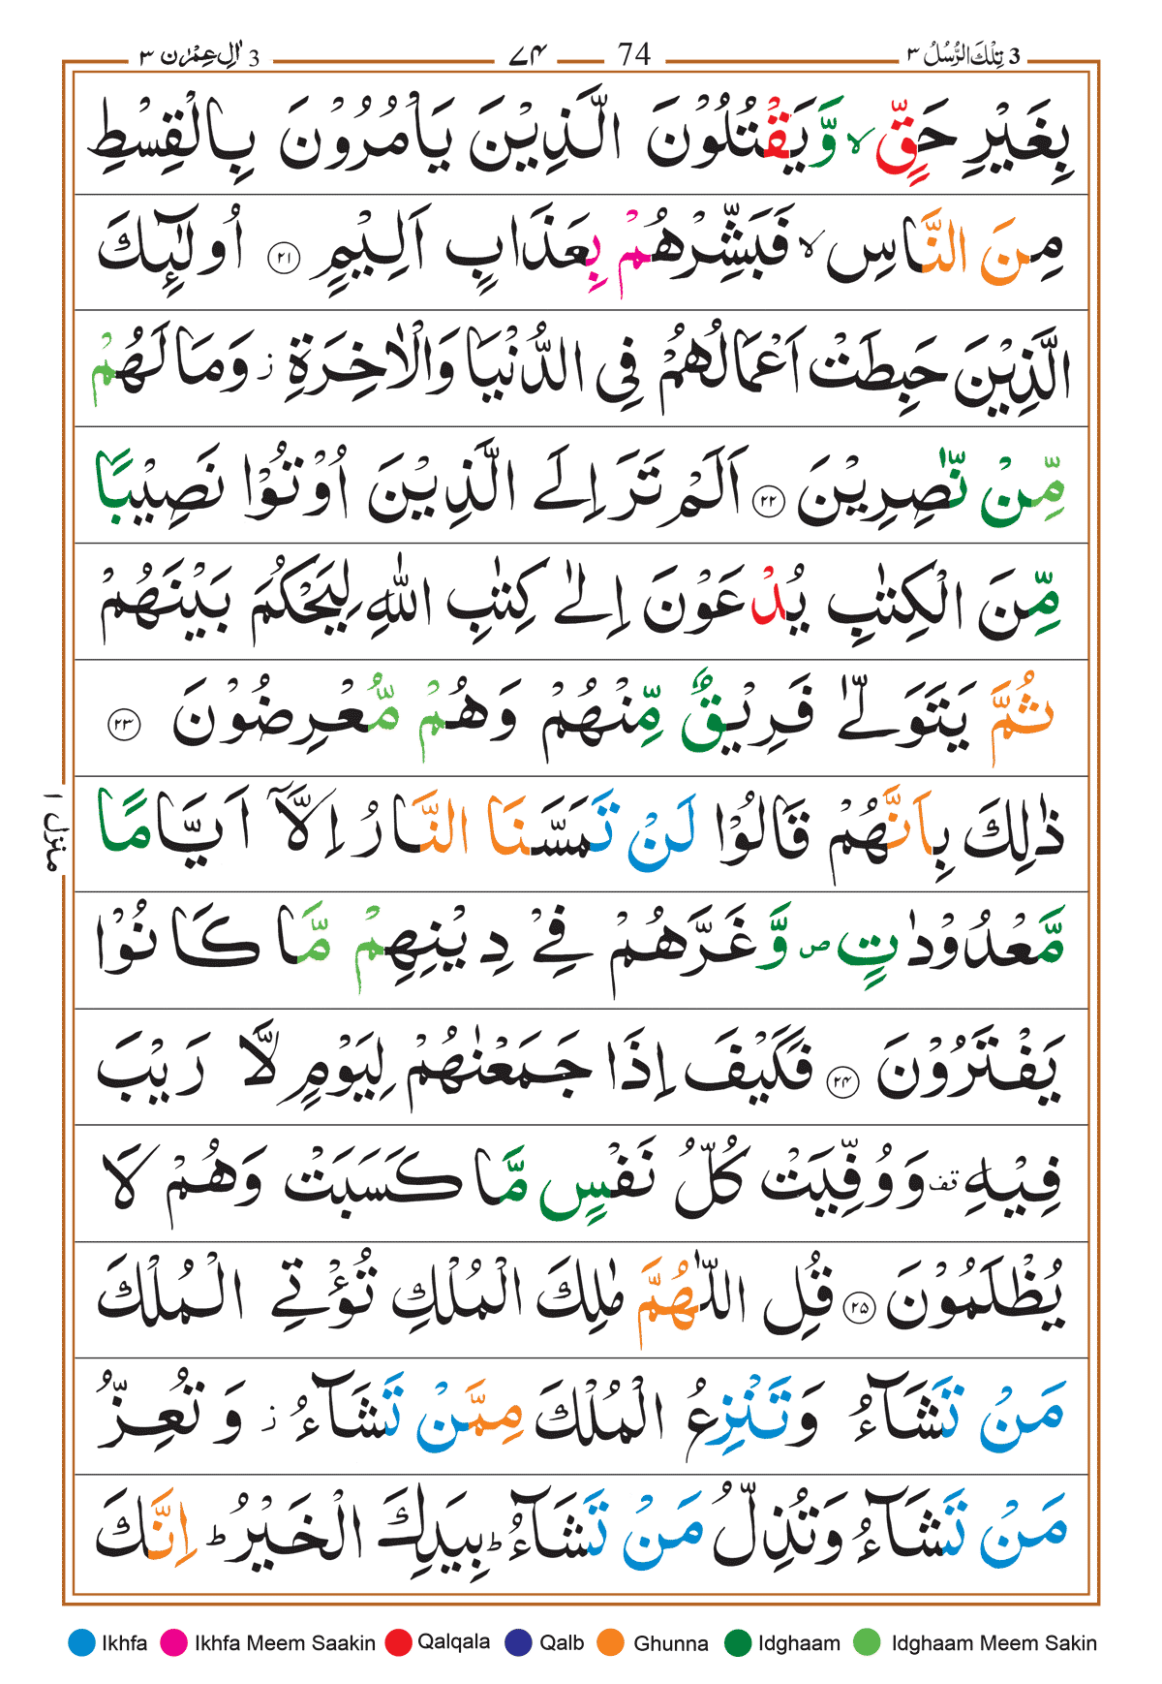 3 تِلْكَ الرُّسُلُ ٣ 74 ۷۴ 3 اٰلِ عِمْرٰن ٣
بِغَيْرِ حَقٍّ ۙ وَّيَقْتُلُوْنَ الَّذِيْنَ يَاْمُرُوْنَ بِالْقِسْطِ
مِنَ النَّاسِ ۙ فَبَشِّرْهُمْ بِعَذَابٍ اَلِيْمٍ ۲۱ اُولٰٓئِكَ
الَّذِيْنَ حَبِطَتْ اَعْمَالُهُمْ فِى الدُّنْيَا وَالْاٰخِرَةِ ز وَمَا لَهُمْ
مِّنْ نّٰصِرِيْنَ ۲۲ اَلَمْ تَرَ اِلَى الَّذِيْنَ اُوْتُوْا نَصِيْبًا
مِّنَ الْكِتٰبِ يُدْعَوْنَ اِلٰى كِتٰبِ اللّٰهِ لِيَحْكُمَ بَيْنَهُمْ
ثُمَّ يَتَوَلّٰى فَرِيْقٌ مِّنْهُمْ وَهُمْ مُّعْرِضُوْنَ ۲۳
ذٰلِكَ بِاَنَّهُمْ قَالُوْا لَنْ تَمَسَّنَا النَّارُ اِلَّآ اَيَّامًا
مَّعْدُوْدٰتٍ ص وَّغَرَّهُمْ فِيْ دِيْنِهِمْ مَّا كَانُوْا
يَفْتَرُوْنَ ۲۴ فَكَيْفَ اِذَا جَمَعْنٰهُمْ لِيَوْمٍ لَّا رَيْبَ
فِيْهِ قف وَوُفِّيَتْ كُلُّ نَفْسٍ مَّا كَسَبَتْ وَهُمْ لَا
يُظْلَمُوْنَ ۲۵ قُلِ اللّٰهُمَّ مٰلِكَ الْمُلْكِ تُؤْتِي الْمُلْكَ
مَنْ تَشَآءُ وَتَنْزِعُ الْمُلْكَ مِمَّنْ تَشَآءُ ز وَتُعِزُّ
مَنْ تَشَآءُ وَتُذِلُّ مَنْ تَشَآءُ ؕ بِيَدِكَ الْخَيْرُ ؕ اِنَّكَ
منزل ١
Ikhfa Ikhfa Meem Saakin Qalqala Qalb Ghunna Idghaam Idghaam Meem Sakin